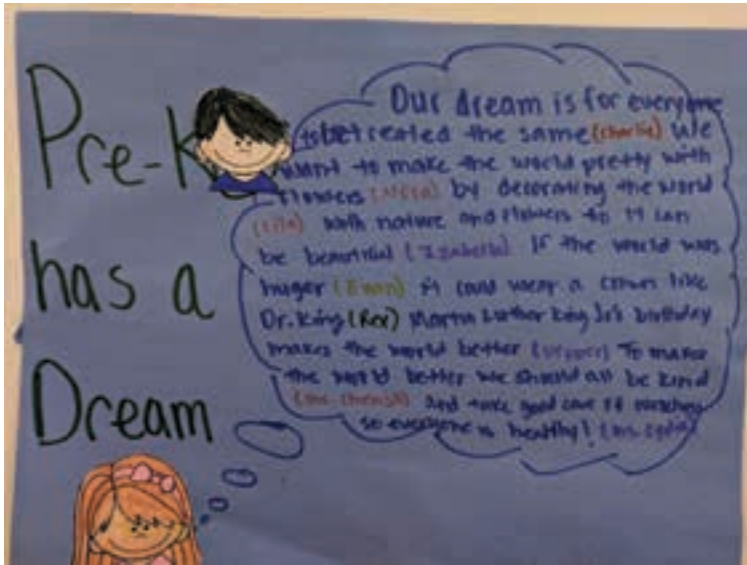 Pre-K
has a
Dream
Our dream is for everyone
to be treated the same (Charlie) We
want to make the world pretty with
flowers by decorating the world
(Lila) with nature and flowers so it can
be beautiful (Izabella) If the world was
huger (Evan) it could wear a crown like
Dr. King (Rex) Martin Luther King Jr's birthday
makes the world better To make
the world better we should all be kind
and take good care of ourselves
so everyone is healthy!